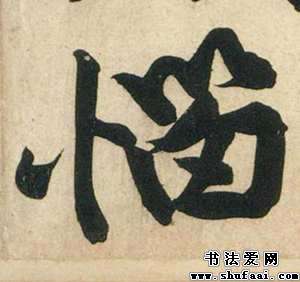 惱
书法爱网
www.shufaai.com